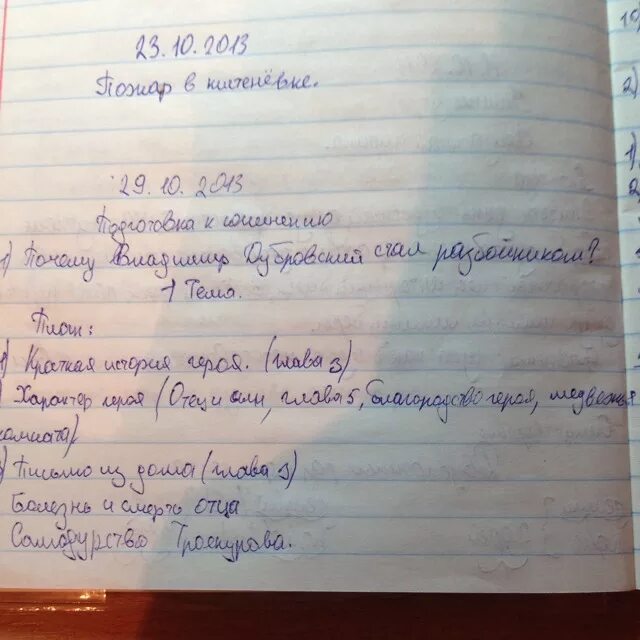 23.10.2013
Пожар в кистенёвке.
29.10.2013
Подготовка к сочинению
1) Почему Владимир Дубровский стал разбойником?
1 Тема.
План:
1) Краткая история героя. (глава 3)
) Характер героя (Отец и сын, глава 5, благородство героя, медвежья
комната)
) Письмо из дома (глава 3)
Болезнь и смерть отца
Самодурство Троекурова.
10
2)
1)
2